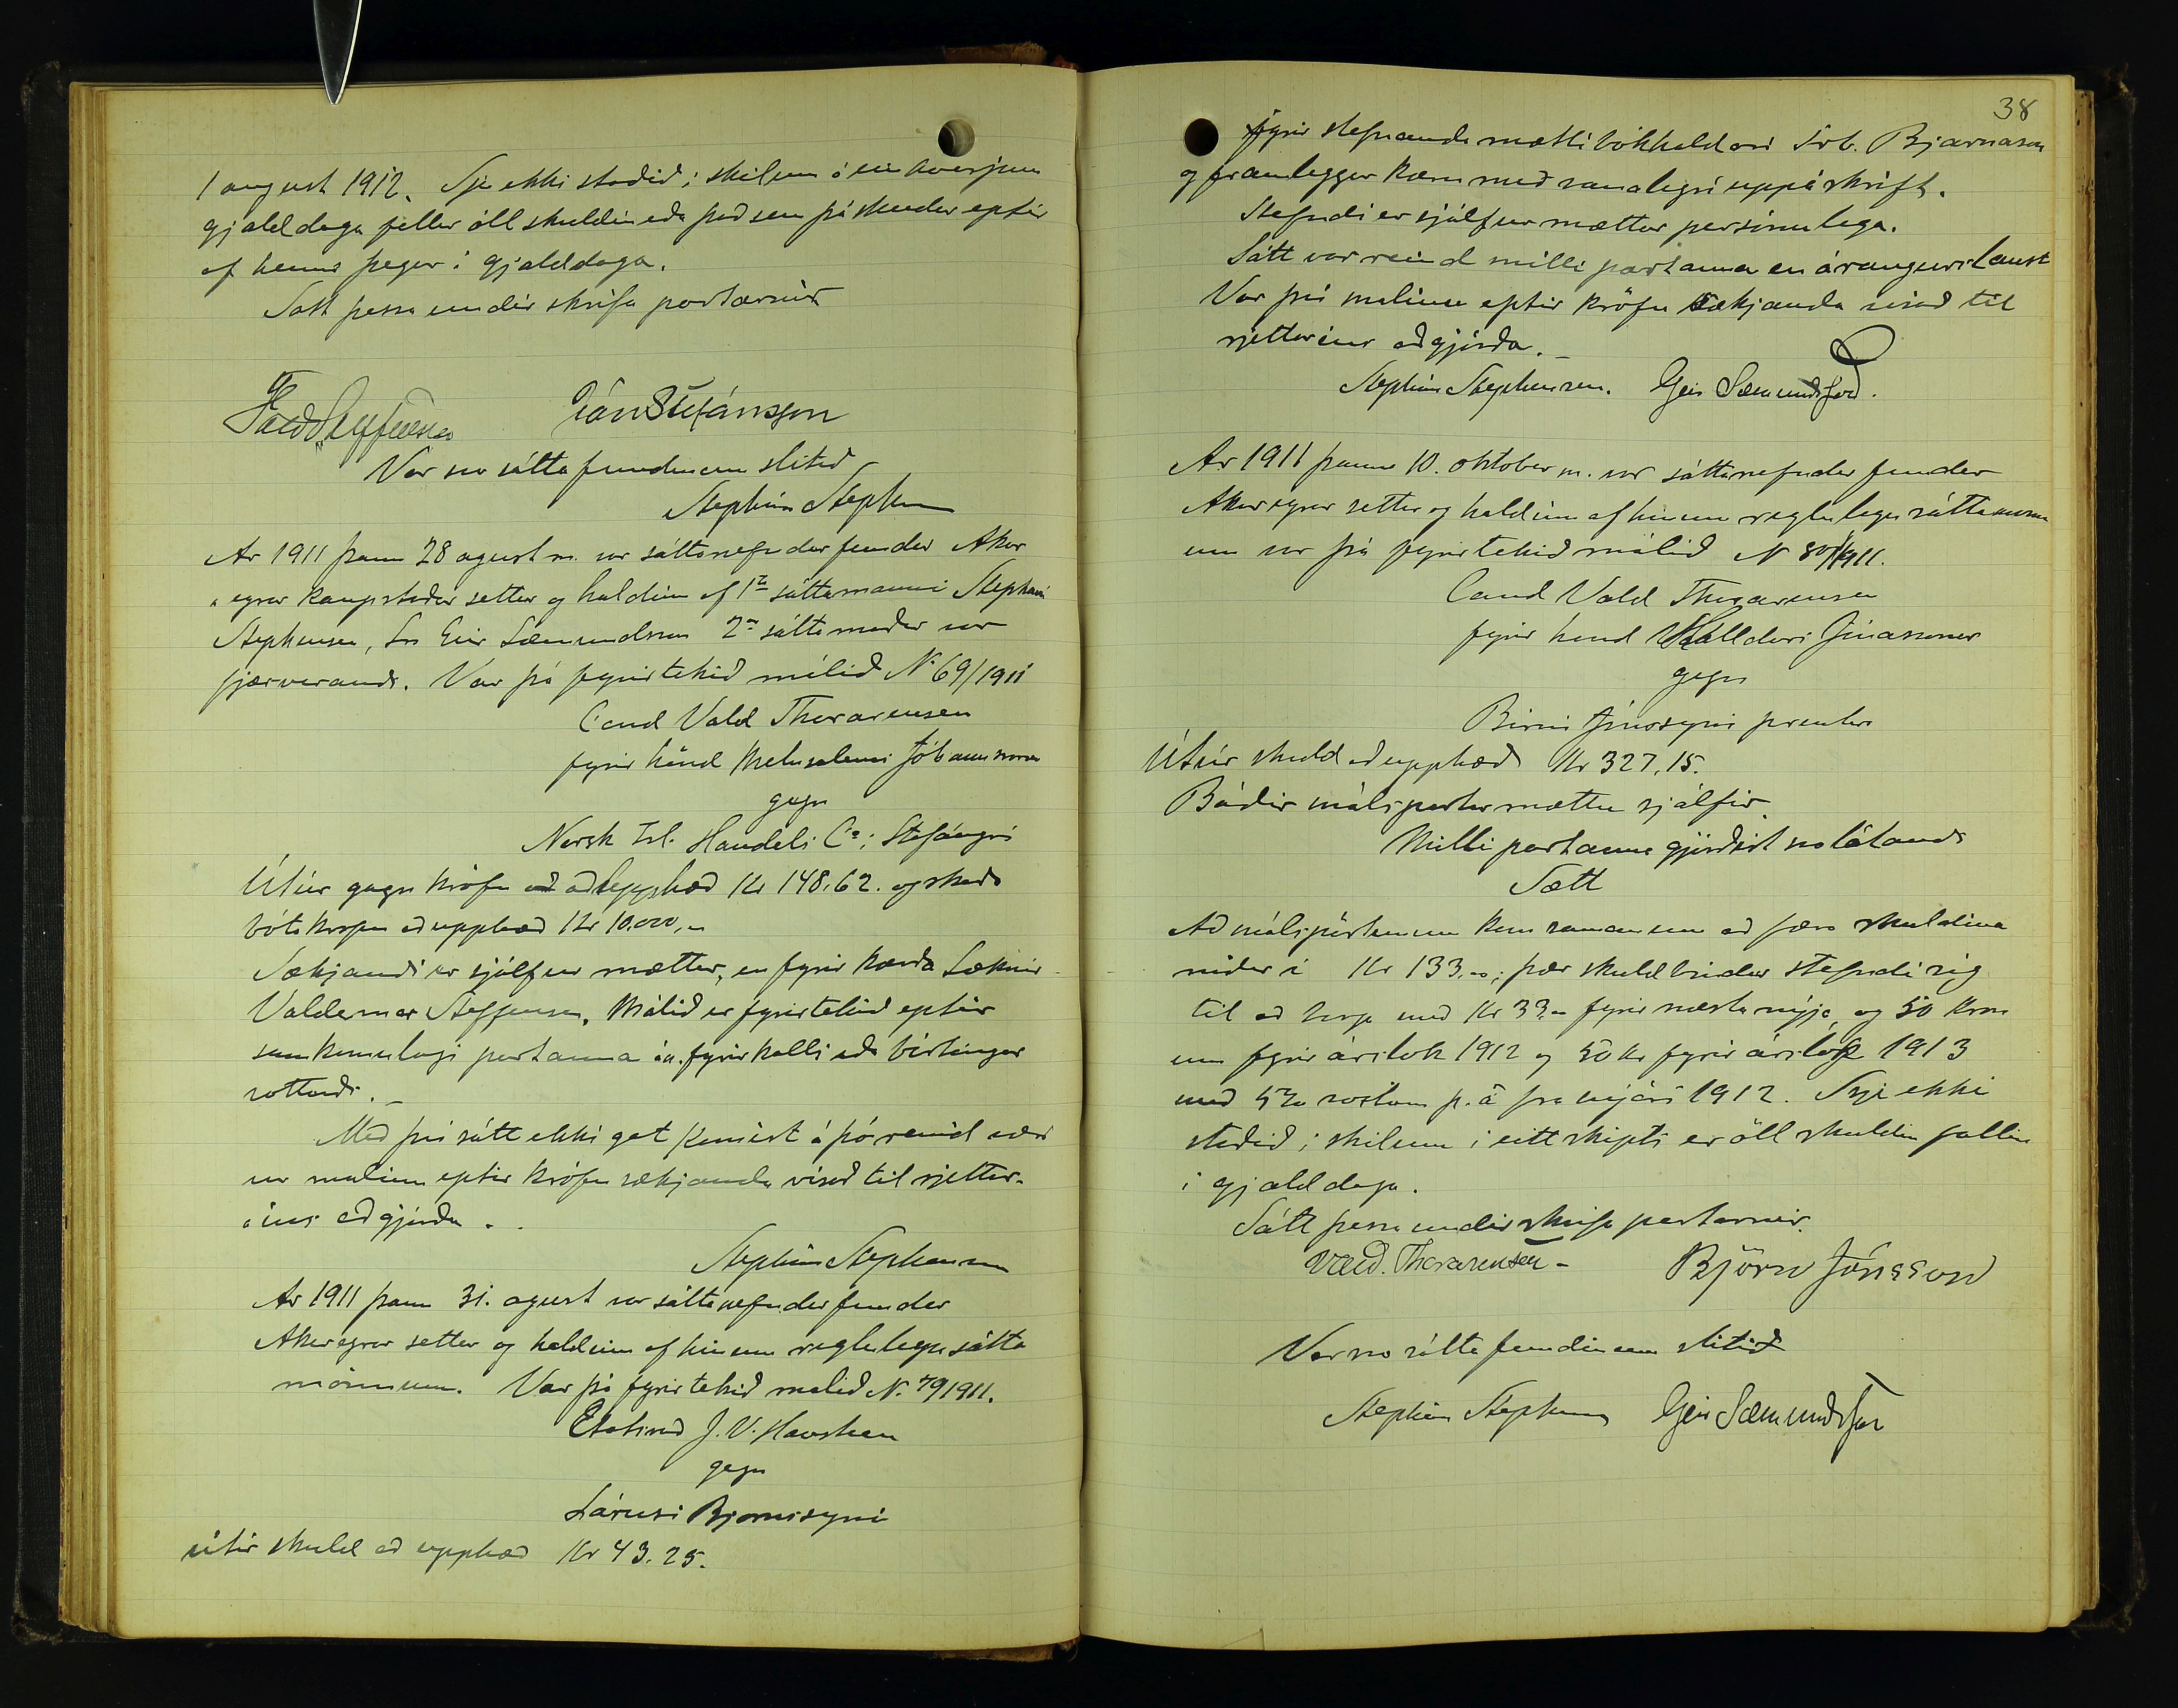 1 august 1912. Sje ekki staðið í skilum á einhverjum
gjalddaga fellur öll skuldin eða það sem þá stendur eptir
af henni þegar í gjalddaga.
Sátt þessa undir skrifa partarnir
Jón Stefánsson
Var svo sátta fundinum slitið
Stephán Stephensen
Ar 1911 þann 28 agust m. var sáttanefndar fundur Akur
eyrar kaupstaðar settur og haldinn af 1ta sáttamanni Stepháni
Stephensen, Geir Sæmundsson 2r sáttamaður var
fjærverandi. Var þá fyrirtekið málið N. 69/1911
Cand Vald Thorarensen
fyrir hönd Metusalems Jóhannssonar
gegn
Norsk Isl. Handels Co; Stafángri
Útúr gagn kröfu að upphæð Kr 148.62. og skaða
bóta kröfu að upphæð Kr 10.000,-
Sækjandi er sjálfur mættur, en fyrir kærða Læknir
Valdemar Steffensen. Málið er fyrirtekið eptir
samkomulagi partanna án fyrirkalls eða birtingar
vottorðs.
Með því sátt ekki gat komist á þó reind væri
var malinu eptir kröfu sækjanda vísað til rjettar-
ins aðgjörða.
Stephán Stephensen
Ar 1911 þann 31. agust var sáttanefndar fundur
Akureyrar settur og haldinn af hinum reglulegu sátta
mönnum. Var þá fyrirtekið malið N. 79 1911.
Etatsráð J. V. Havsteen
gegn
Lárusi Bjornssyni
útúr skuld að upphæð Kr 43.25.
38
fyrir stefnanda mætti bókhaldari Bjarnason
og framleggur kæru með vanalegri uppáskrift.
Stefndi er sjálfur mættur persónulega.
Sátt var reind milli partanna en árangurslaust
Var því malinu eptir kröfu sækjanda vísað til
rjettarins aðgjörða.
Stephán Stephensen. Geir Sæmundsson.
Ar 1911 þann 10. oktober m. var sáttanefndar fundur
Akureyrar settur og haldinn af hinum reglulegu sáttamönn
um var þá fyrirtekið málið N 80/1911.
Cand Vald Thorarensen
fyrir hönd Halldórs Jónassonar
gegn
Birni Jónssyni prentara
Útúr skuld að upphæð Kr 327.15.
Báðir málspartar mættu sjálfir.
Milli partanna gjörðist svolátandi
Sætt
Að málspörtunum kom saman um að færa skuldina
niður í Kr 133.00; þær skuldbindur stefndi sig
til að borga með Kr 33.00 fyrir næsta nýjár, og 50 Kron
um fyrir árslok 1912 og 50 kr fyrir árslok 1913
með 5% vöxtum p. á frá nýjári 1912. Sje ekki
staðið í skilum í eitt skipti er öll skuldin fallin
í gjalddaga.
Sátt þessa undirskrifa partarnir.
Vald. Thorarensen - Björn Jónsson
Var svo sátta fundinum slitið
Stephán Stephensen Geir Sæmundsson